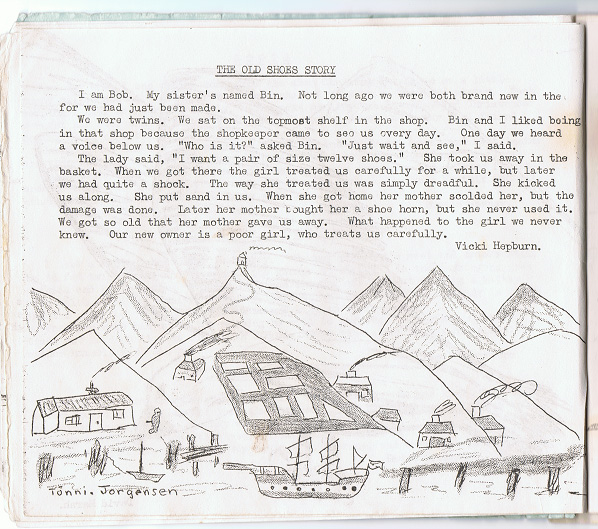 THE OLD SHOES STORY
I am Bob. My sister's named Bin. Not long ago we were both brand new in the
for we had just been made.
We were twins. We sat on the topmost shelf in the shop. Bin and I liked being
in that shop because the shopkeeper came to see us every day. One day we heard
a voice below us. "Who is it?" asked Bin. "Just wait and see," I said.
The lady said, "I want a pair of size twelve shoes." She took us away in the
basket. When we got there the girl treated us carefully for a while, but later
we had quite a shock. The way she treated us was simply dreadful. She kicked
us along. She put sand in us. When she got home her mother scolded her, but the
damage was done. Later her mother bought her a shoe horn, but she never used it.
We got so old that her mother gave us away. What happened to the girl we never
knew. Our new owner is a poor girl, who treats us carefully.
Vicki Hepburn.
Tonni. Jorgensen